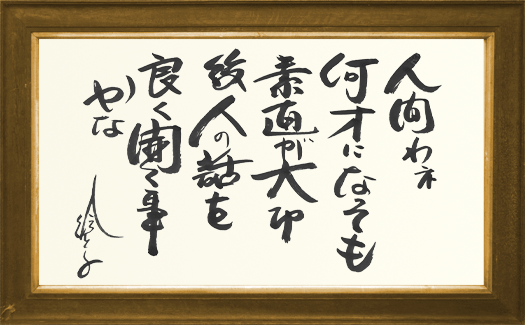 人間わネ
何才になっても
素直が大切
故人の話を
良く聞く事
やな